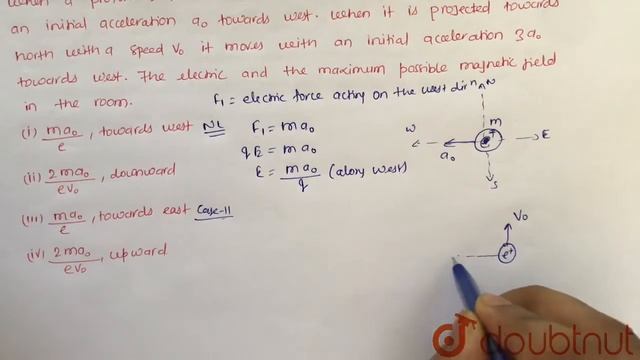 when a
an initial acceleration a₀ towards west. when it is projected towards
north with a speed V₀ it moves with an initial acceleration 3a₀
towards west. The electric and the maximum possible magnetic field
in the room.
F₁ = electric force acting on the west dirⁿ
(i) ma₀/e , towards west NL
F₁ = ma₀
(ii) 2ma₀/ev₀ , downward
qE = ma₀
E = ma₀/q (along west)
(iii) ma₀/e , towards east Case-II
(iv) 2ma₀/ev₀ , upward
N
m
W
e⁺
E
a₀
S
V₀
e⁺
doubtnut